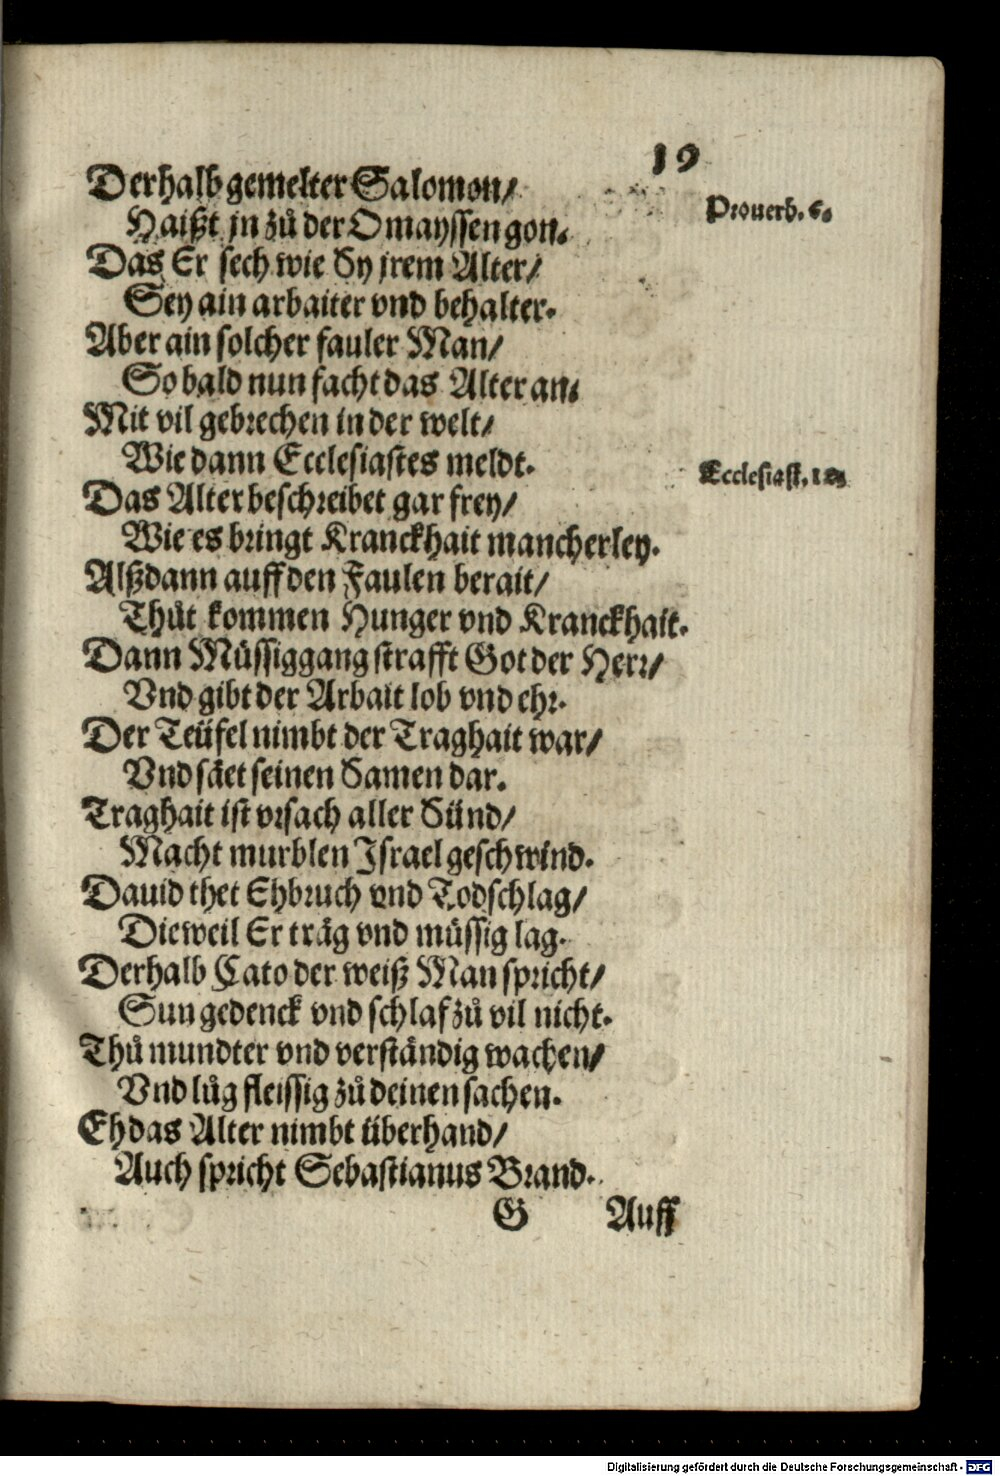 19
Derhalb gemelter Salomon/
Proverb. 6.
Haißt jn zů der Omayssen gon.
Das Er sech wie Sy jrem Alter/
Sey ain arbaiter vnd behalter.
Aber ain solcher fauler Man/
So bald nun facht das Alter an.
Mit vil gebrechen in der welt/
Wie dann Ecclesiastes meldt.
Ecclesiast. 12.
Das Alter beschreibet gar frey/
Wie es bringt Kranckhait mancherley.
Alßdann auff den Faulen berait/
Thůt kommen Hunger vnd Kranckhait.
Dann Müssiggang strafft Got der Herr/
Vnd gibt der Arbait lob vnd ehr.
Der Teüfel nimbt der Traghait war/
Vnd säet seinen Samen dar.
Traghait ist vrsach aller Sünd/
Macht murblen Israel geschwind.
Dauid thet Ehbruch vnd Todschlag/
Dieweil Er träg vnd müssig lag.
Derhalb Cato der weiß Man spricht/
Sun gedenck vnd schlaf zů vil nicht.
Thů mundter vnd verständig wachen/
Vnd lůg fleissig zů deinen sachen.
Eh das Alter nimbt überhand/
Auch spricht Sebastianus Brand.
G Auff
Digitalisierung gefördert durch die Deutsche Forschungsgemeinschaft - DFG